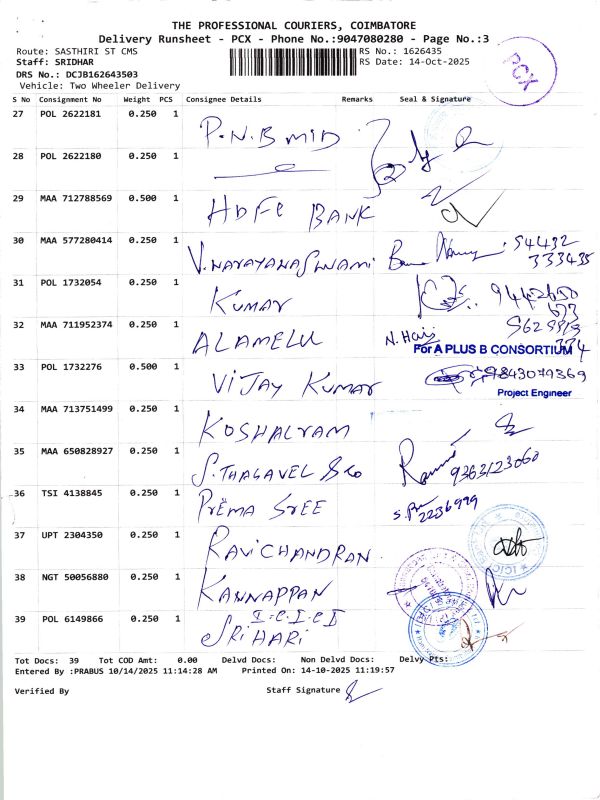 THE PROFESSIONAL COURIERS, COIMBATORE
Delivery Runsheet - PCX - Phone No.:9047080280 - Page No.:3
Route: SASTHIRI ST CMS RS No.: 1626435
Staff: SRIDHAR RS Date: 14-Oct-2025
DRS No.: DCJB162643503
Vehicle: Two Wheeler Delivery
PCX
S No Consignment No Weight PCS Consignee Details Remarks Seal & Signature
27 POL 2622181 0.250 1 P.N.B MID
28 POL 2622180 0.250 1
29 MAA 712788569 0.500 1 HDFC BANK
30 MAA 577280414 0.250 1 V.NARAYANASWAMI 94432
333435
31 POL 1732054 0.250 1 KUMAR
32 MAA 711952374 0.250 1 ALAMELU N. Hari
For A PLUS B CONSORTIUM
33 POL 1732276 0.500 1 VIJAY KUMAR 9843079369
Project Engineer
34 MAA 713751499 0.250 1 KOSHALRAM
35 MAA 650828927 0.250 1 S.THAGAVEL & Co 9363123060
36 TSI 4138845 0.250 1 PREMA SREE 2236999
37 UPT 2304350 0.250 1 RAVICHANDRAN.
38 NGT 50056880 0.250 1 KANNAPPAN
39 POL 6149866 0.250 1 I.C.I.C.I
SRIHARI
Tot Docs: 39 Tot COD Amt: 0.00 Delvd Docs: Non Delvd Docs: Delvy Pts:
Entered By :PRABUS 10/14/2025 11:14:28 AM Printed On: 14-10-2025 11:19:57
Verified By Staff Signature